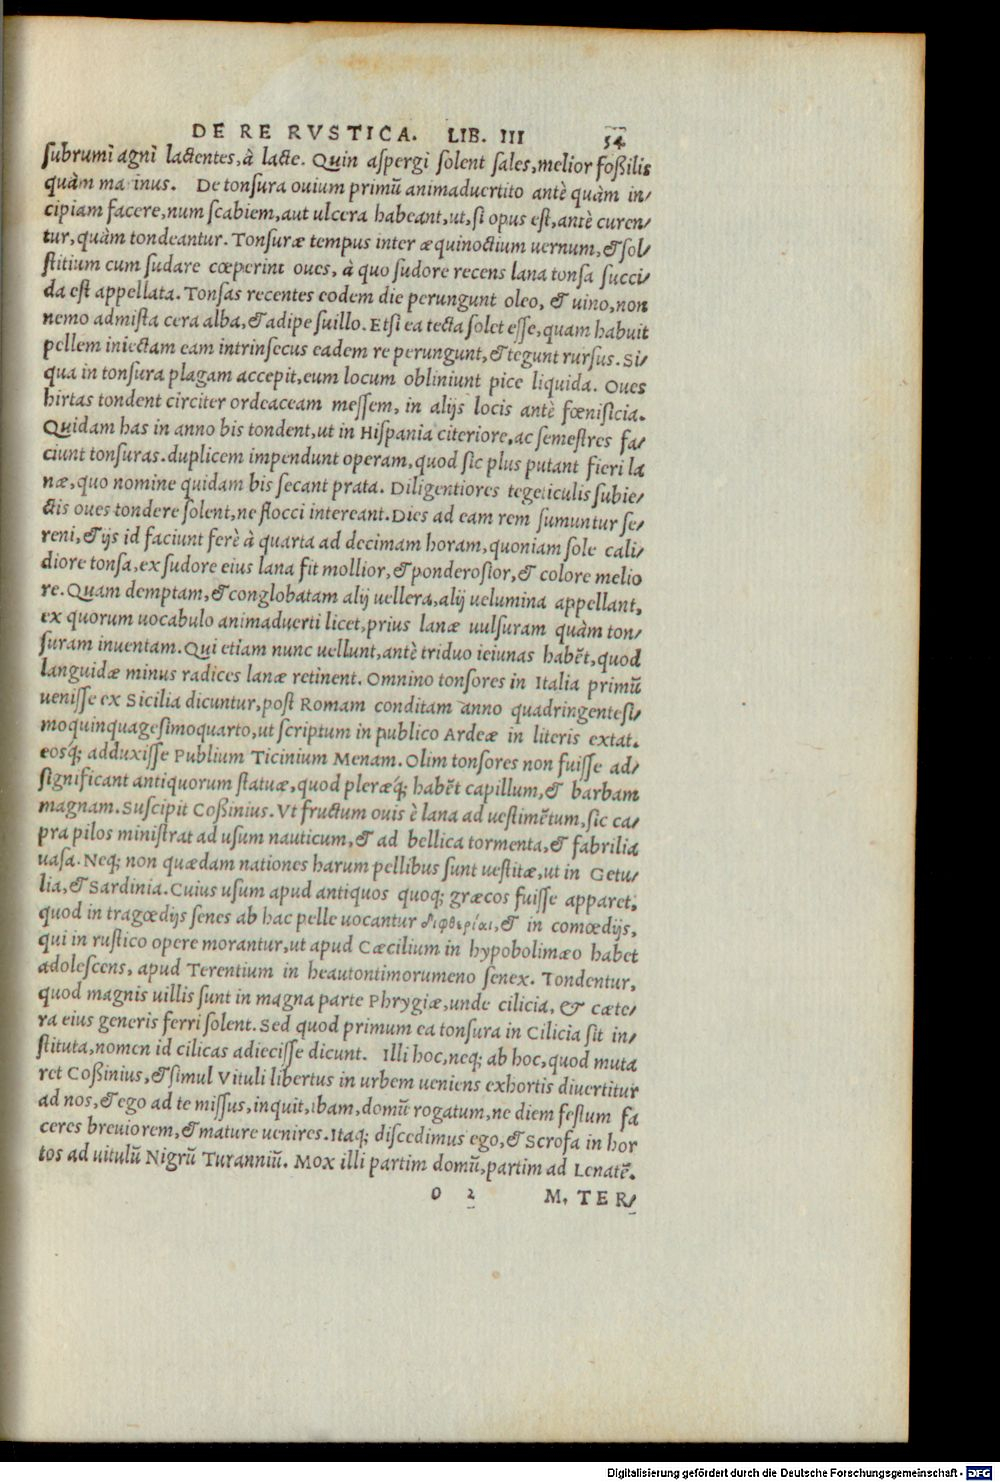 DE RE RVSTICA. LIB. III 54
subrumi agni lactentes, à lacte. Quin aspergi solent sales, melior foßilis
quàm marinus. De tonsura ouium primũ animaduertito antè quàm in/
cipiam facere, num scabiem, aut ulcera habeant, ut, si opus est, antè curen/
tur, quàm tondeantur. Tonsuræ tempus inter æquinoctium uernum, & sol/
stitium cum sudare cœperint oues, à quo sudore recens lana tonsa succi/
da est appellata. Tonsas recentes eodem die perungunt oleo, & uino, non
nemo admista cera alba, & adipe suillo. Etsi ea tecta solet esse, quam habuit
pellem iniectam eam intrinsecus eadem re perungunt, & tegunt rursus. Si/
qua in tonsura plagam accepit, eum locum obliniunt pice liquida. Oues
hirtas tondent circiter ordeaceam messem, in alijs locis antè fœnisicia.
Quidam has in anno bis tondent, ut in Hispania citeriore, ac semestres fa/
ciunt tonsuras. duplicem impendunt operam, quod sic plus putant fieri la
næ, quo nomine quidam bis secant prata. Diligentiores tegeticulis subie/
ctis oues tondere solent, ne flocci intereant. Dies ad eam rem sumuntur se/
reni, & ijs id faciunt ferè à quarta ad decimam horam, quoniam sole cali/
diore tonsa, ex sudore eius lana fit mollior, & ponderosior, & colore melio
re. Quam demptam, & conglobatam alij uellera, alij uelumina appellant,
ex quorum uocabulo animaduerti licet, prius lanæ uulsuram quàm ton/
suram inuentam. Qui etiam nunc uellunt, antè triduo ieiunas habẽt, quod
languidæ minus radices lanæ retinent. Omnino tonsores in Italia primũ
uenisse ex Sicilia dicuntur, post Romam conditam anno quadringentesi/
moquinquagesimoquarto, ut scriptum in publico Ardeæ in literis extat.
eosq; adduxisse Publium Ticinium Menam. Olim tonsores non fuisse ad/
significant antiquorum statuæ, quod pleræq́; habẽt capillum, & barbam
magnam. Suscipit Coßinius. Vt fructum ouis è lana ad uestimẽtum, sic ca/
pra pilos ministrat ad usum nauticum, & ad bellica tormenta, & fabrilia
uasa. Neq; non quædam nationes harum pellibus sunt uestitæ, ut in Getu/
lia, & Sardinia. Cuius usum apud antiquos quoq; græcos fuisse apparet,
quod in tragœdijs senes ab hac pelle uocantur διφθερίαι, & in comœdijs,
qui in rustico opere morantur, ut apud Cæcilium in hypobolimæo habet
adolescens, apud Terentium in heautontimorumeno senex. Tondentur,
quod magnis uillis sunt in magna parte Phrygiæ, unde cilicia, & cæte/
ra eius generis ferri solent. Sed quod primum ea tonsura in Cilicia sit in/
stituta, nomen id cilicas adiecisse dicunt. Illi hoc, neq; ab hoc, quod muta
ret Coßinius, & simul Vituli libertus in urbem ueniens exhortis diuertitur
ad nos, & ego ad te missus, inquit, ibam, domũ rogatum, ne diem festum fa
ceres breuiorem, & mature uenires. Itaq; discedimus ego, & Scrofa in hor
tos ad uitulũ Nigrũ Turanniũ. Mox illi partim domũ, partim ad Lenatẽ.
O 2 M. TER/
Digitalisierung gefördert durch die Deutsche Forschungsgemeinschaft - DFG